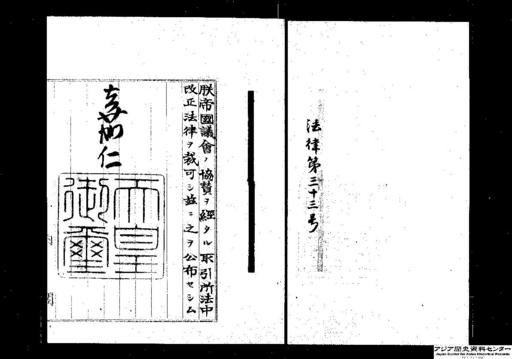 法律第三十三号
朕帝國議會ノ協賛ヲ經タル取引所法中
改正法律ヲ裁可シ茲ニ之ヲ公布セシム
嘉仁
天皇
御璽
アジア歴史資料センター
Japan Center for Asian Historical Records